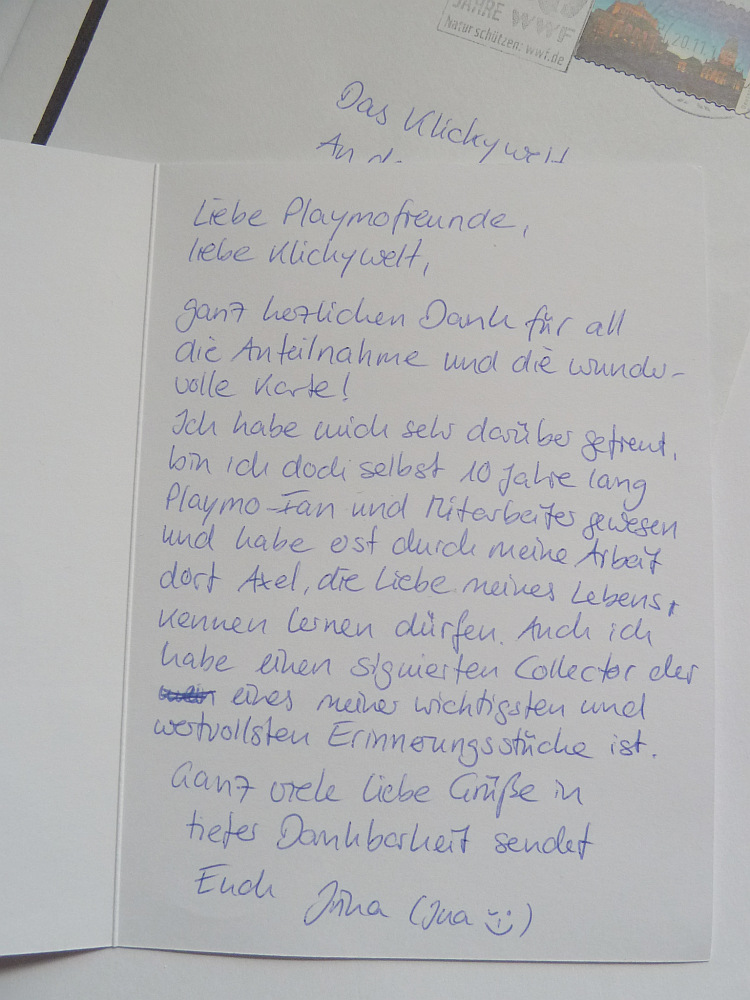 JAHRE WWF
Natur schützen: wwf.de
20.11.
Das Klickywelt
An
Liebe Playmofreunde,
liebe Klickywelt,
ganz herzlichen Dank für all
die Anteilnahme und die wunder-
volle Karte!
Ich habe mich sehr darüber gefreut,
bin ich doch selbst 10 Jahre lang
Playmo-Fan und Mitarbeiter gewesen
und habe erst durch meine Arbeit
dort Axel, die Liebe meines Lebens,
kennen lernen dürfen. Auch ich
habe einen signierten Collector der
eines meiner wichtigsten und
wertvollsten Erinnerungsstücke ist.
Ganz viele liebe Grüße in
tiefer Dankbarkeit sendet
Euch